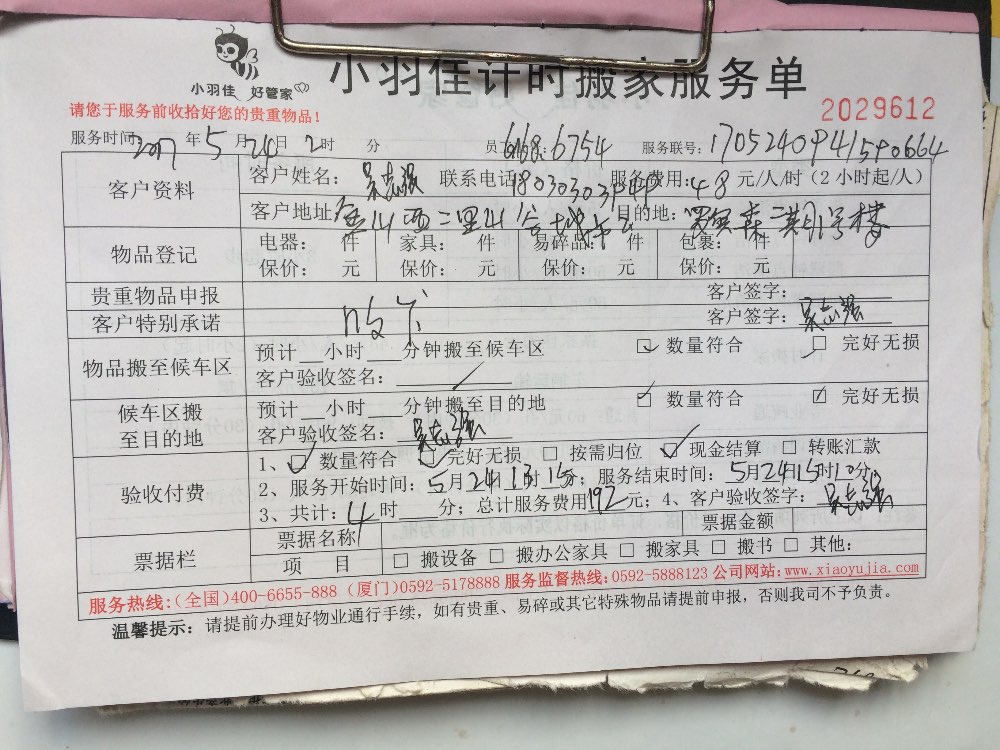 小羽佳 好管家
小羽佳计时搬家服务单
请您于服务前收拾好您的贵重物品！
2029612
服务时间: 2017年5月24日2时 分 员工 6168:6754 服务联号: 1705240941590664
客户资料 客户姓名: 吴志强 联系电话: 服务费用: 48 元/人/时（2小时起/人）
客户地址: 金山西二里 目的地: 期1号楼
物品登记 电器: 件 家具: 件 易碎品: 件 包裹: 件
保价: 元 保价: 元 保价: 元 保价: 元
贵重物品申报 客户签字:
客户特别承诺 客户签字: 吴志强
物品搬至候车区 预计 小时 分钟搬至候车区 ☑ 数量符合 □ 完好无损
客户验收签名:
候车区搬至目的地 预计 小时 分钟搬至目的地 ☑ 数量符合 ☑ 完好无损
客户验收签名: 吴志强
验收付费 1、☑ 数量符合 ☑ 完好无损 □ 按需归位 ☑ 现金结算 □ 转账汇款
2、服务开始时间: 5月24日13时15分; 服务结束时间: 5月24日15时10分
3、共计: 4时 分; 总计服务费用192元; 4、客户验收签字: 吴志强
票据栏 票据名称 票据金额
项 目 □ 搬设备 □ 搬办公家具 □ 搬家具 □ 搬书 □ 其他:
服务热线:(全国)400-6655-888 (厦门)0592-5178888 服务监督热线:0592-5888123 公司网站:www.xiaoyujia.com
温馨提示: 请提前办理好物业通行手续，如有贵重、易碎或其它特殊物品请提前申报，否则我司不予负责。